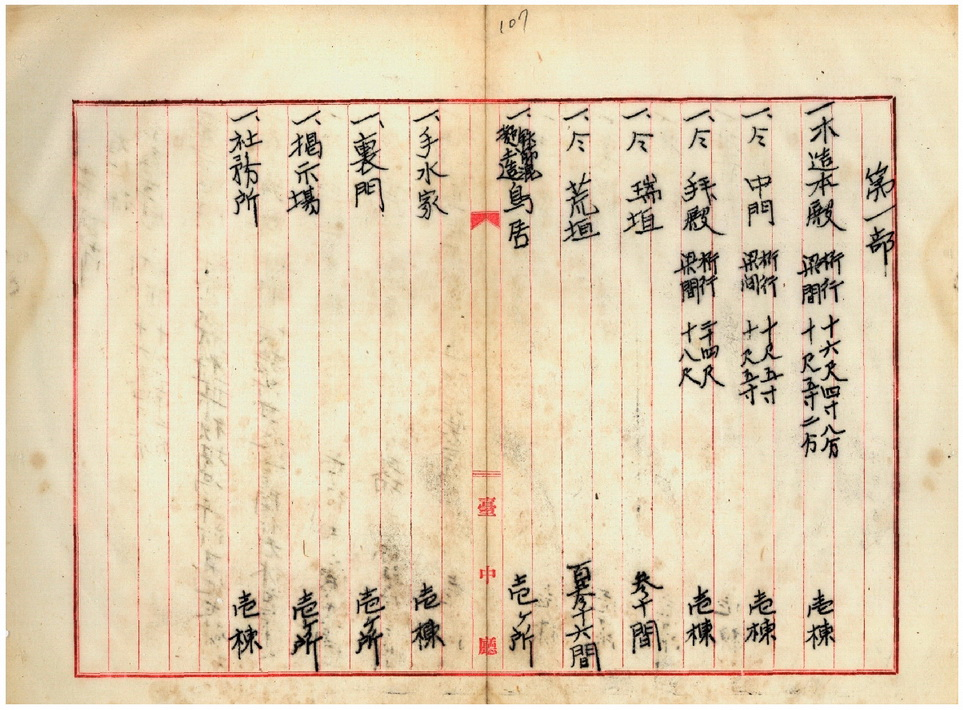 107
第一部
一、木造本殿 桁行 十六尺四寸八分 梁間 十尺五寸二分 壱棟
一、仝 中門 桁行 十尺五寸 梁间 十尺五寸 壱棟
一、仝 拜殿 桁行 二十四尺 梁間 十八尺 壱棟
一、仝 瑞垣 参十間
一、仝 荒垣 百参十六間
一、鳥居 壱ヶ所
臺中廳
一、手水家 壱棟
一、裏門 壱ヶ所
一、掲示場 壱ヶ所
一、社務所 壱棟